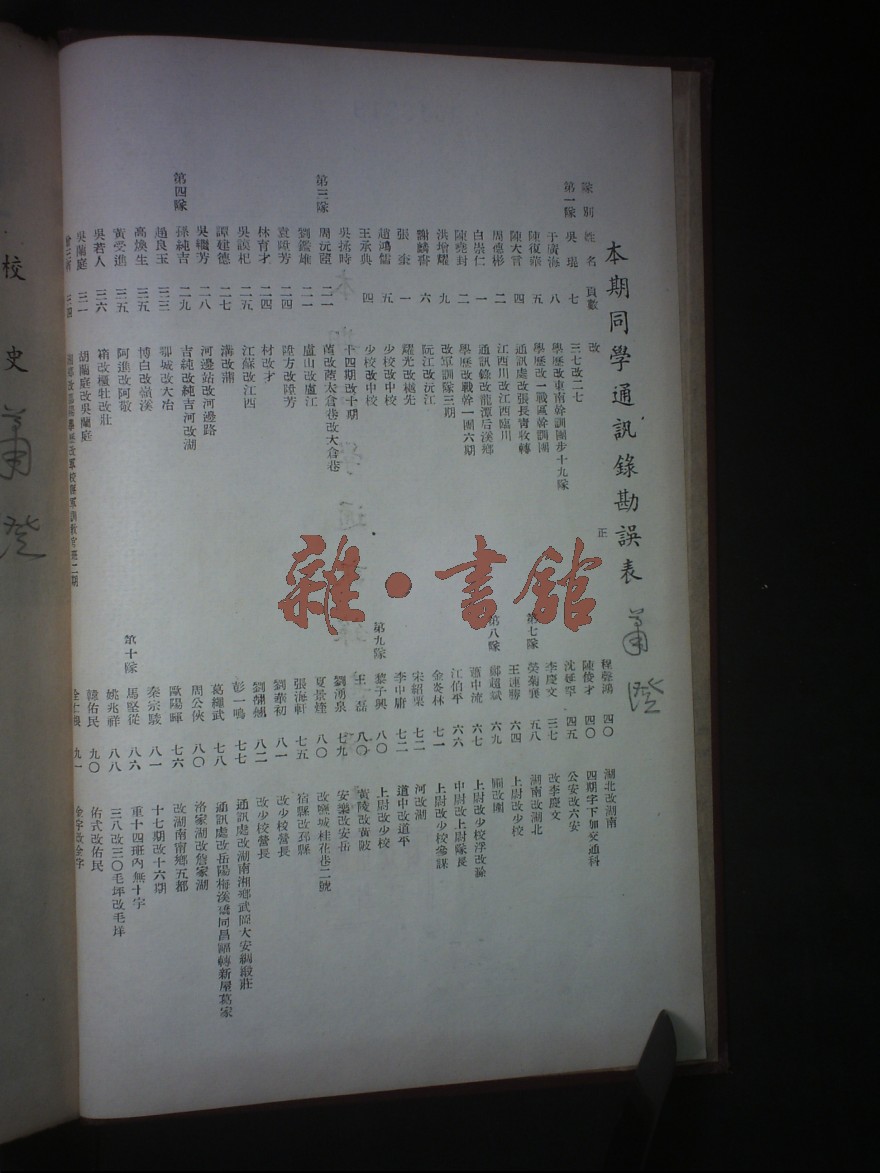 本期同學通訊錄勘誤表
蕭澄
隊別 姓名 頁數 改 正
第一隊 吳琨 七 三七改二七
于廣海 八 學歷改東南幹訓團步十九隊
陳復華 五 學歷改一戰區幹訓團
陳大言 四 通訊處改張長青收轉
周德彬 二 江西川改江西臨川
白崇仁 一 通訊錄改龍潭后溪鄉
陳堯封 二 學歷改戰幹一團六期
洪增耀 九 改軍訓隊三期
謝麟書 六 阮江改沅江
張奎 一 耀光改樾先
趙鴻儒 五 少校改中校
王承典 四 少校改中校
吳拯時 十四期改十期
第三隊 周沅 二一 蒼改蒼太倉巷改大倉巷
劉鑑雄 二一 盧山改盧江
袁陞芳 二四 陞方改陞芳
林育才 二四 材改才
吳謨杞 二五 江蘇改江西
譚建德 二七 溝改蒲
吳繼芳 二八 河邊站改河邊路
第四隊 孫純吉 二九 吉純改純吉河改湖
趙良玉 三三 鄂城改大冶
高煥生 三五 博白改嶺溪
黃受進 三五 阿進改阿敬
吳若人 三六 箱改種牡改壯
吳蘭庭 三一 胡蘭庭改吳蘭庭
程聲鴻 四〇 湖北改湖南
陳俊才 四〇 四期字下加交通科
沈延平 四五 公安改六安
李慶文 三七 改李慶文
第七隊 榮菊襄 五八 湖南改湖北
王連勝 六四 上尉改少校
第八隊 鄺超斌 六九 願改園
蕭中流 六七 上尉改少校浮改滁
江伯平 六六 中尉改上尉隊長
金奐林 七一 上尉改少校參謀
宋紹栗 七二 河改湖
李中庸 七二 道中改道平
第九隊 黎子興 八〇 上尉改少校
王磊 八〇 黃陵改黃陂
劉湧泉 七九 安樂改安岳
夏景煌 八〇 改鹽城桂花巷二號
張海軒 七五 宿縣改邳縣
劉華初 八一 改少校營長
劉翹 八二 改少校營長
彭一鳴 七七 通訊處改湖南湘鄉武岡大安綢緞莊
葛繩武 七八 通訊處改岳陽梅溪橋同昌福轉新屋葛家
周公俠 八〇 洛家湖改詹家湖
歐陽暉 七六 改湖南甯鄉五都
第十隊 秦宗駿 八一 十七期改十六期
馬堅從 八六 重十四班內無十字
姚兆祥 八八 三八改三〇毛坪改毛垟
韓佑民 九〇 佑式改佑民
校史
蕭澄
雜·書館